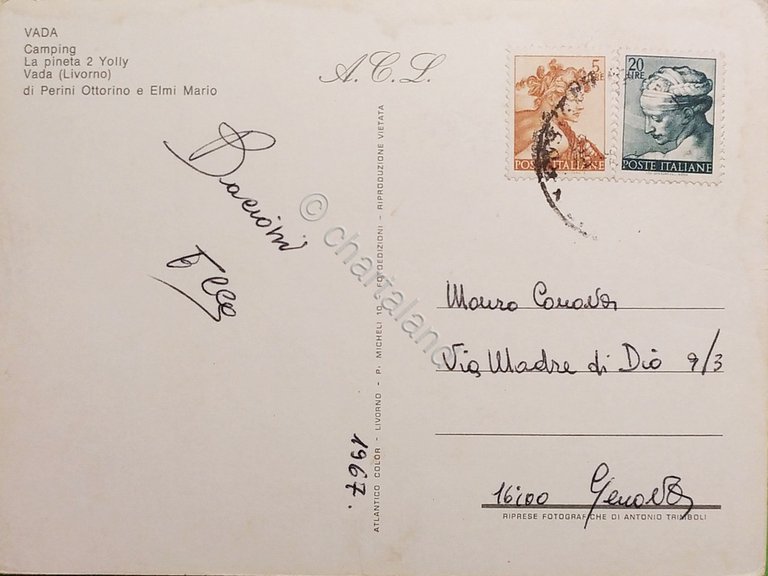 VADA
Camping
La pineta 2 Yolly
Vada (Livorno)
di Perini Ottorino e Elmi Mario
A.C.L.
5
LIRE
POSTE ITALIANE
20
LIRE
POSTE ITALIANE
Bacioni
© chartaland
ATLANTICO COLOR - LIVORNO - P. MICHELI 10 - FOTOEDIZIONI - RIPRODUZIONE VIETATA
1967.
Mauro
Via Madre di Dio 9/3
16100 Genova
RIPRESE FOTOGRAFICHE DI ANTONIO TRIMBOLI